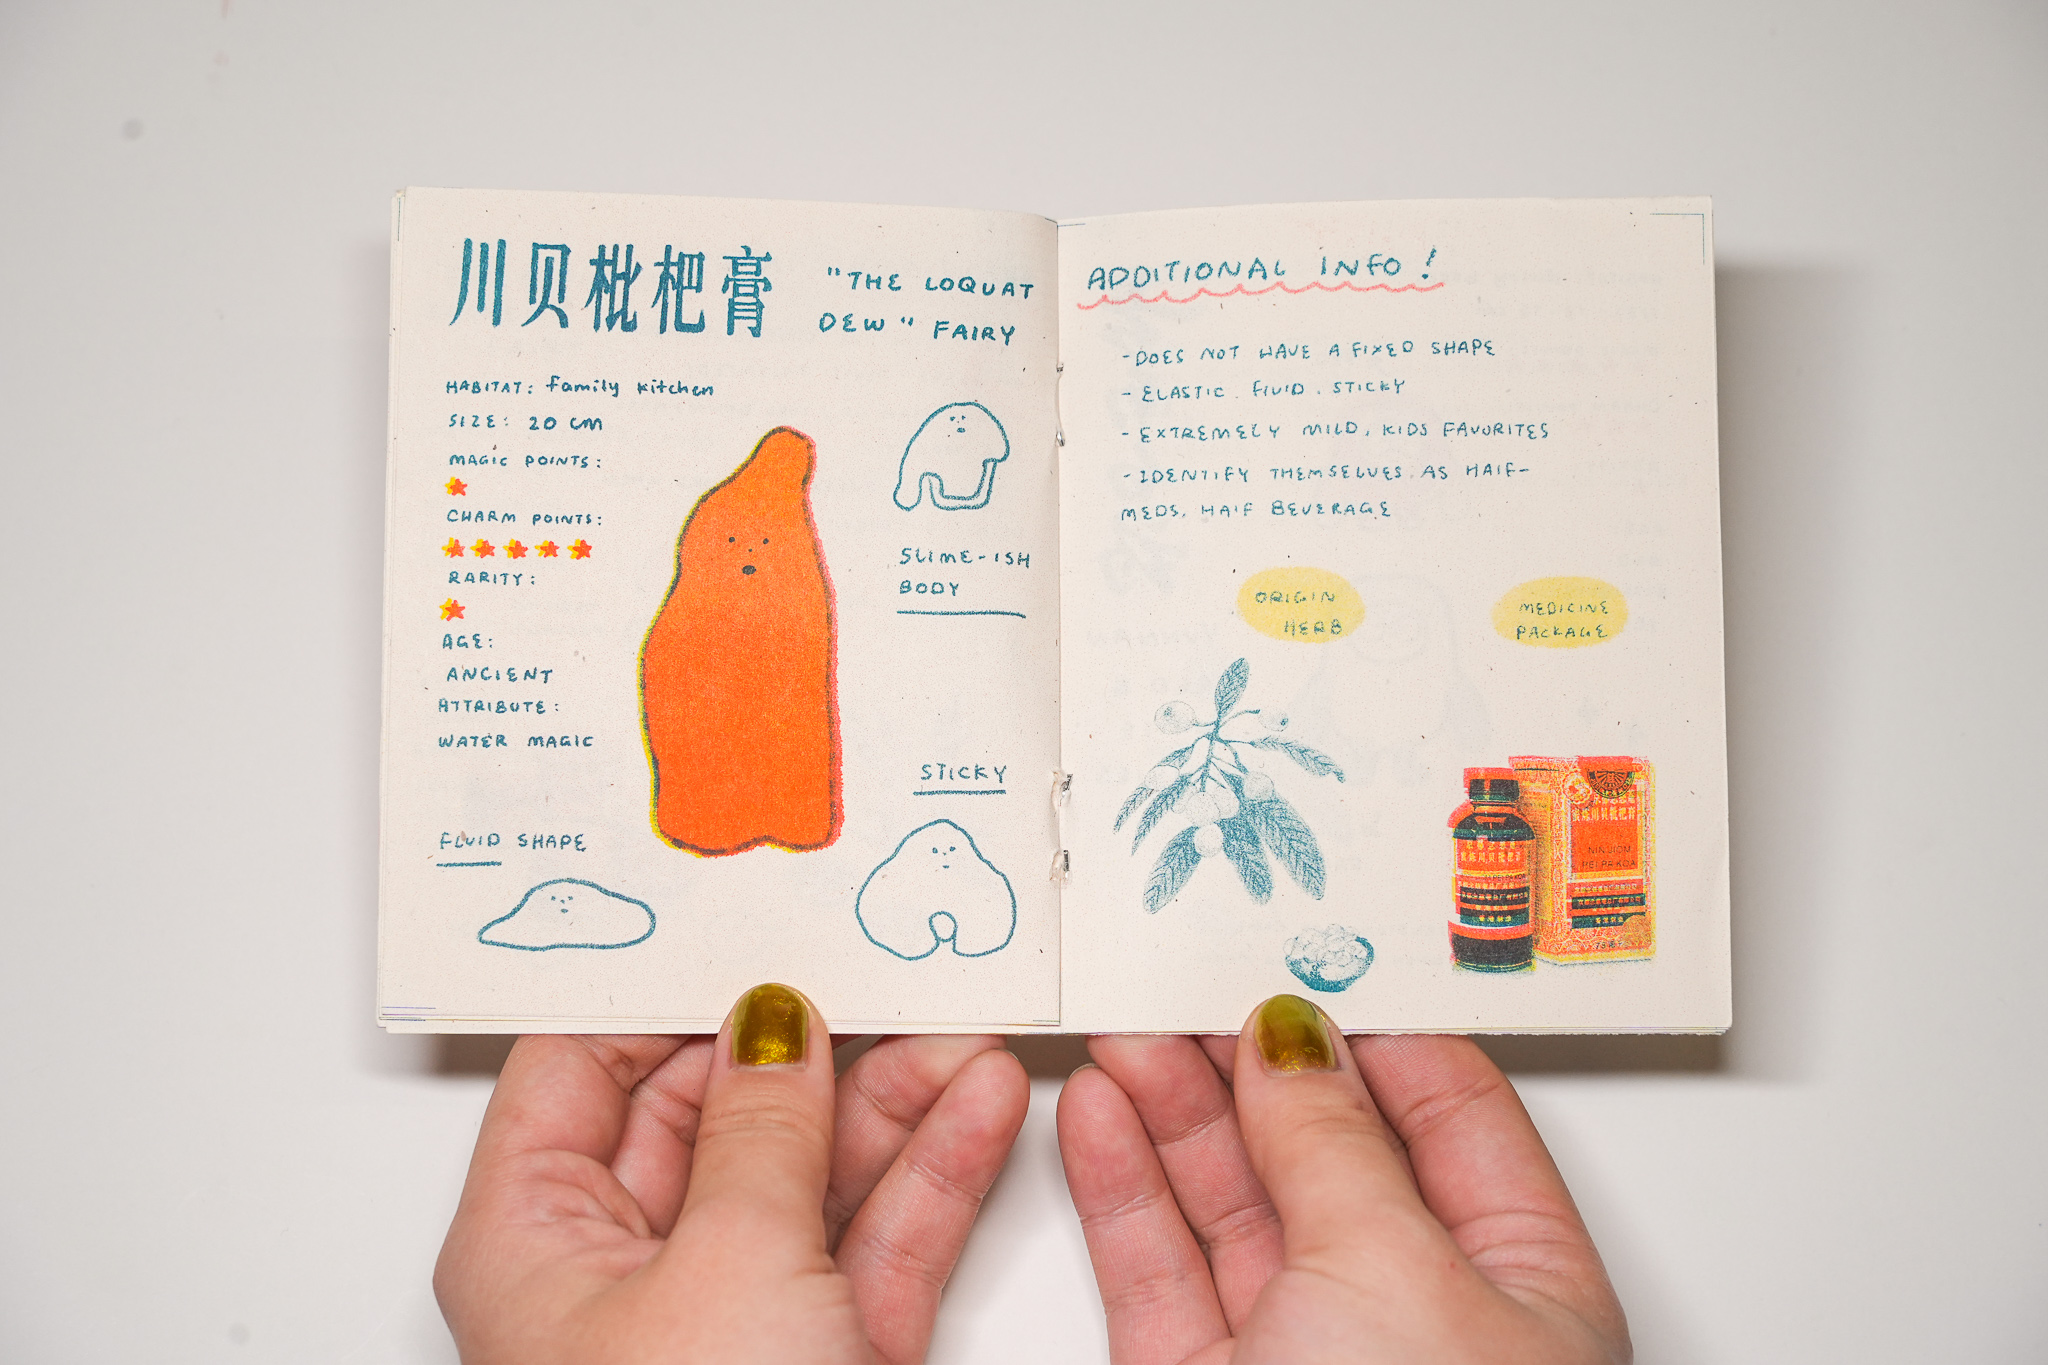 川贝枇杷膏
"THE LOQUAT
DEW" FAIRY
HABITAT: family kitchen
SIZE: 20 cm
MAGIC POINTS:
CHARM POINTS:
RARITY:
AGE:
ANCIENT
ATTRIBUTE:
WATER MAGIC
SLIME-ISH
BODY
STICKY
FLUID SHAPE
ADDITIONAL INFO!
-DOES NOT HAVE A FIXED SHAPE
- ELASTIC. FLUID. STICKY
- EXTREMELY MILD, KIDS FAVORITES
-IDENTIFY THEMSELVES AS HALF-
MEDS, HALF BEVERAGE
ORIGIN
HERB
MEDICINE
PACKAGE
NIN JIOM
PEI PA KOA